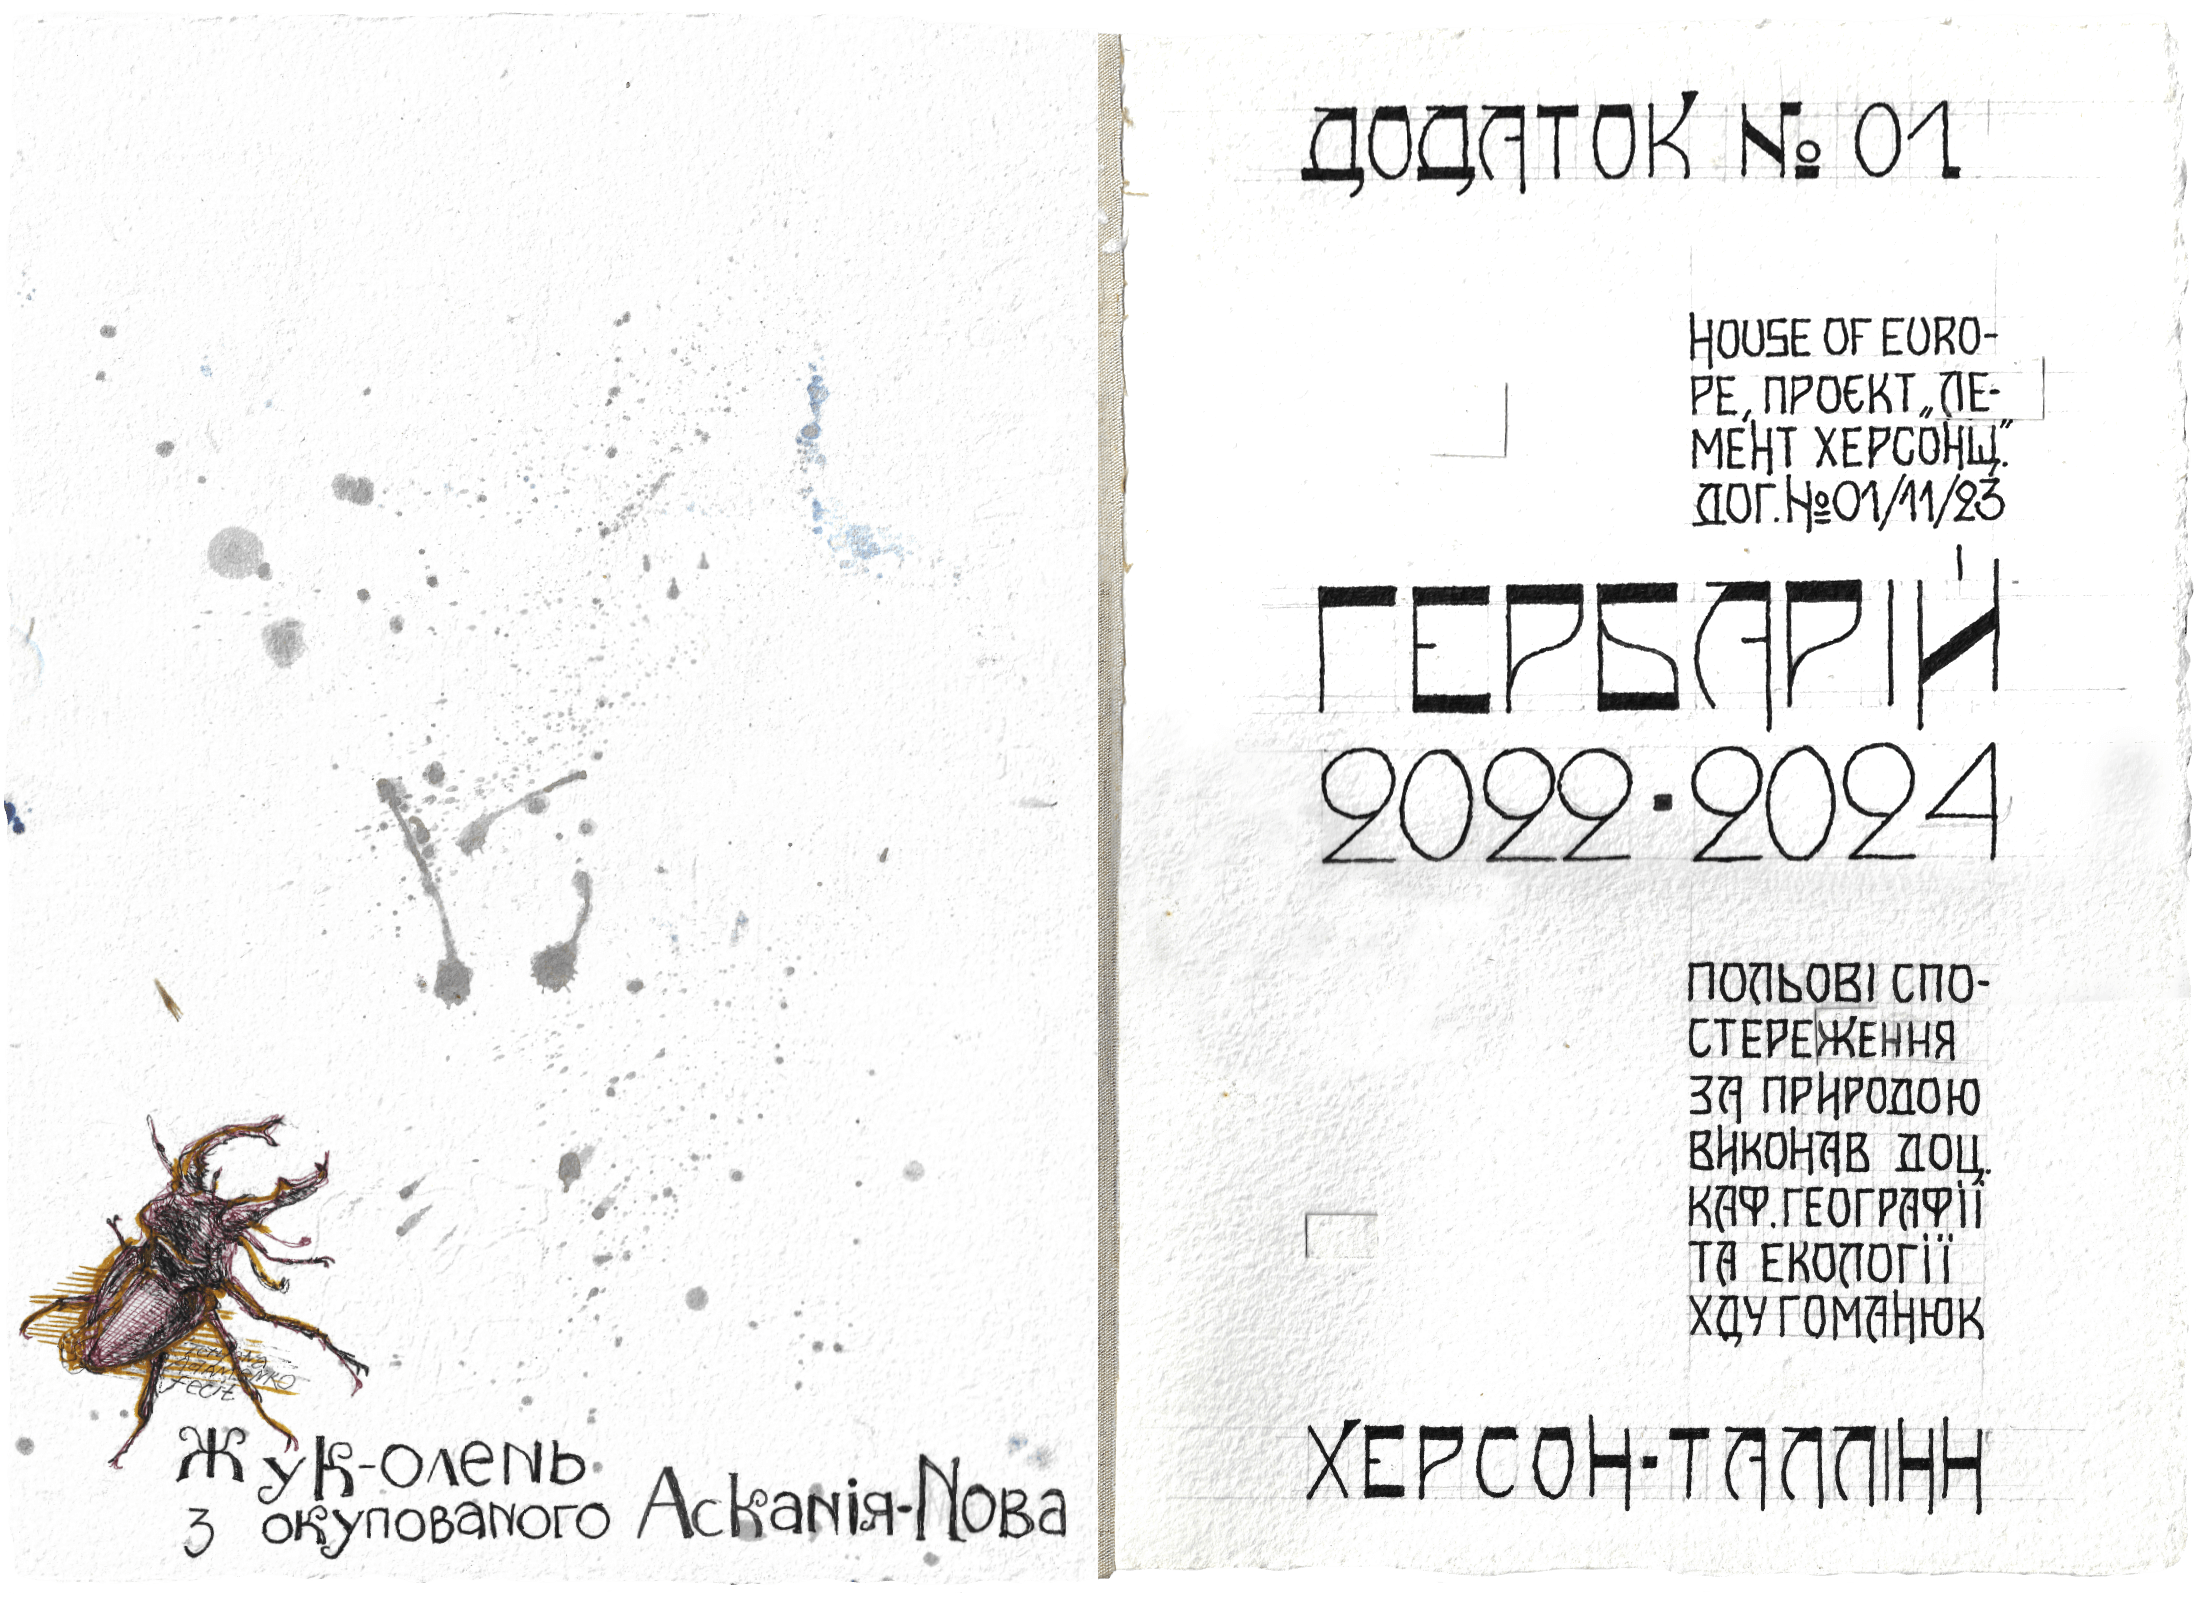 Tetiana
Adamenko
fecit
Жук-олень
з окупованого Асканія-Нова
ДОДАТОК № 01
HOUSE OF EURO-
PE, ПРОЄКТ „ЛЕ-
МЕНТ ХЕРСОНЩ.”
ДОГ. №01/11/23
ГЕРБАРІЙ
2022·2024
ПОЛЬОВІ СПО-
СТЕРЕЖЕННЯ
ЗА ПРИРОДОЮ
ВИКОНАВ ДОЦ.
КАФ. ГЕОГРАФІЇ
ТА ЕКОЛОГІЇ
ХДУ ГОМАНЮК
ХЕРСОН-ТАЛЛІНН